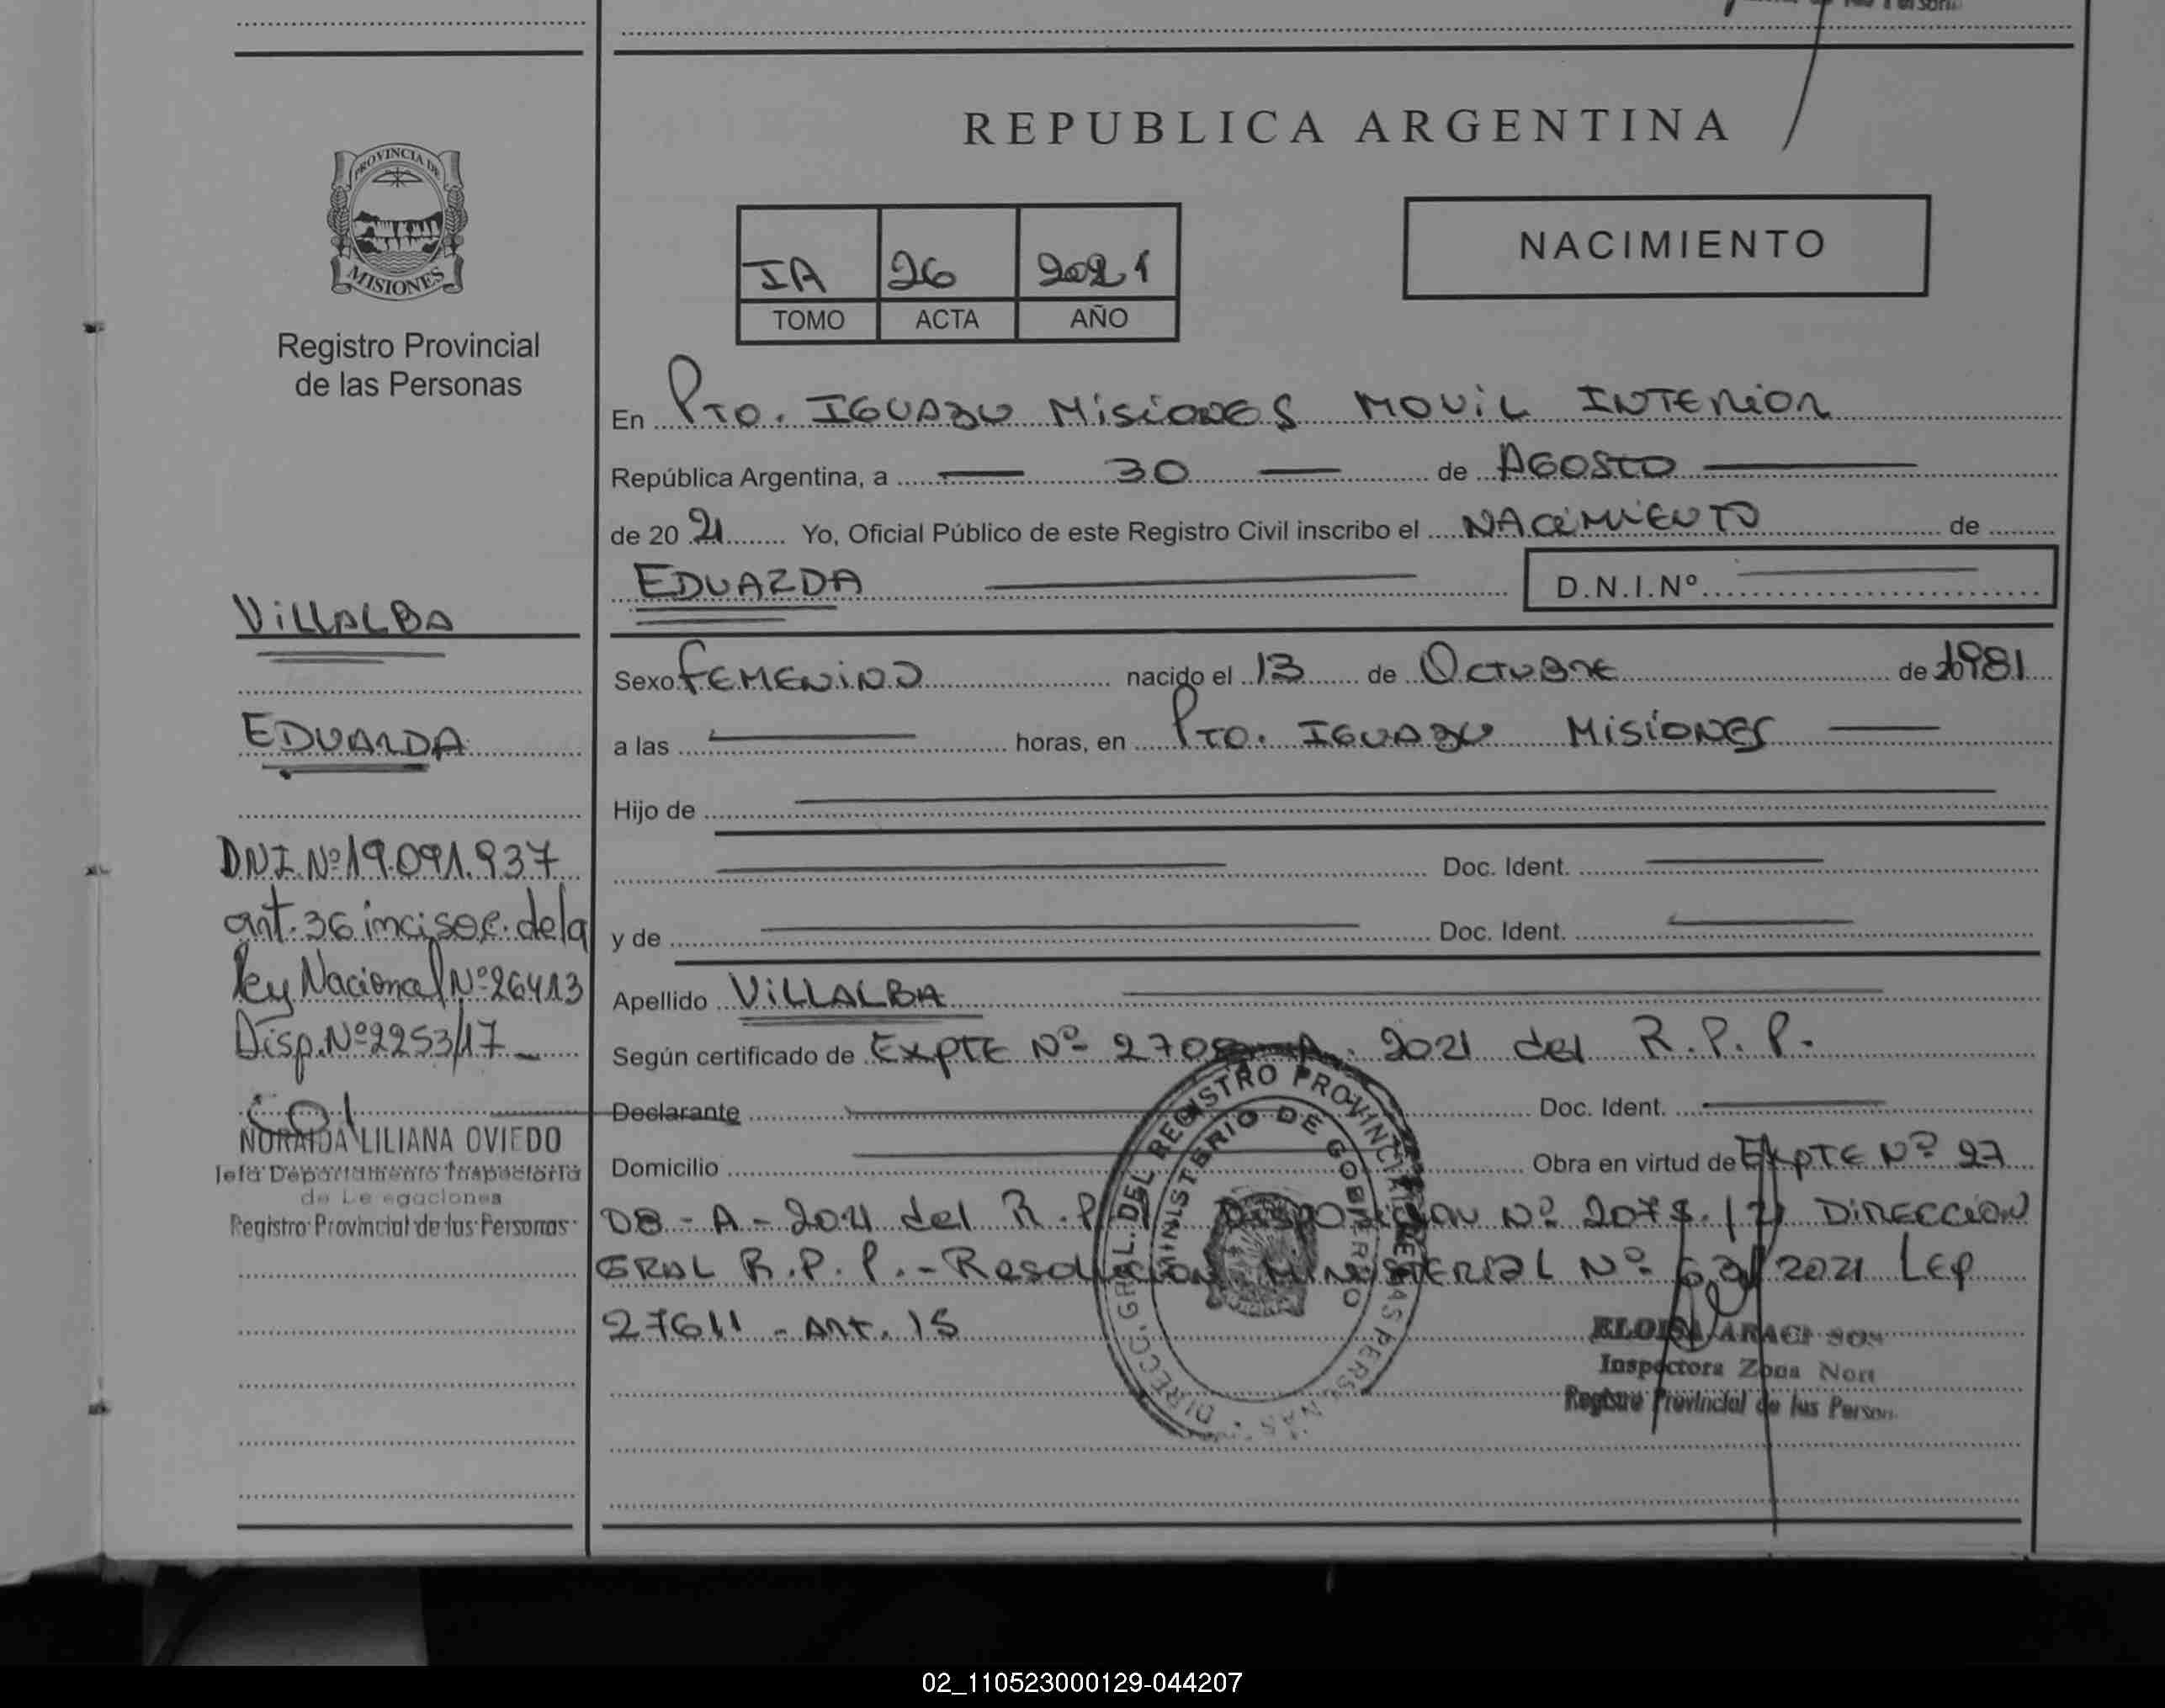 PROVINCIA DE
MISIONES
Registro Provincial
de las Personas
VILLALBA
EDUARDA
DNI Nº 19.091.937
art. 36 inciso c. de la
ley Nacional Nº 26413
Disp. Nº 2253/17
NORAIDA LILIANA OVIEDO
Jefa Departamento Inspectoría
de Delegaciones
Registro Provincial de las Personas
REPUBLICA ARGENTINA
IA 26 2021
TOMO ACTA AÑO
NACIMIENTO
En Pto. IGUAZU MISIONES MOVIL INTERIOR
República Argentina, a 30 de AGOSTO
de 20 21 Yo, Oficial Público de este Registro Civil inscribo el NACIMIENTO de
EDUARDA D.N.I.Nº
Sexo FEMENINO nacido el 13 de OCTUBRE de 1981
a las horas, en Pto. IGUAZU MISIONES
Hijo de
Doc. Ident.
y de Doc. Ident.
Apellido VILLALBA
Según certificado de EXPTE Nº 2708-A-2021 del R.P.P.
Declarante Doc. Ident.
Domicilio Obra en virtud de EXPTE Nº 27
08-A-2021 del R.P.P. DISPOSICION Nº DIRECCION
GRAL R.P.P.- Resolucion MINISTERIAL Nº 2021 Ley
27611 - Art. 15
DIRECC. GRAL. DEL REGISTRO PROVINCIAL DE LAS PERSONAS
MINISTERIO DE GOBIERNO
ELOISA ARACI
Inspectora Zona Nort
Registro Provincial de las Person
02_110523000129-044207